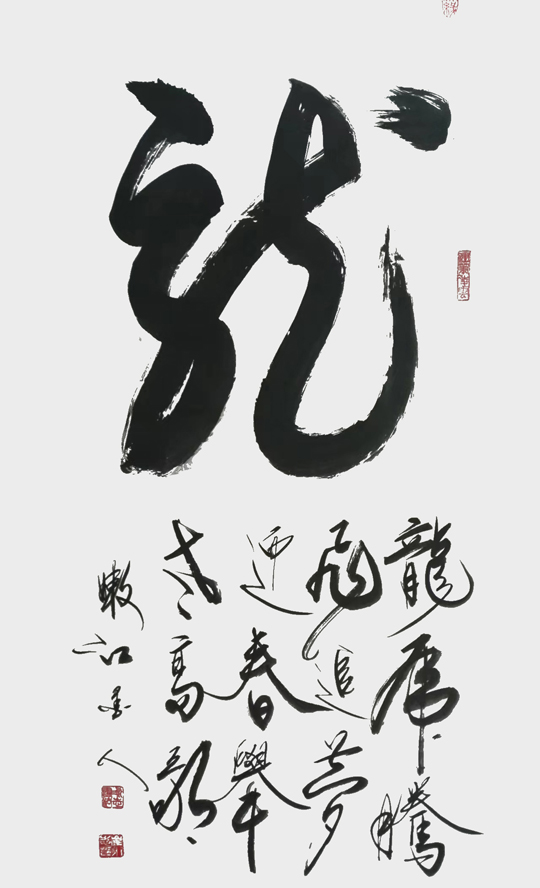 龍
龍虎騰
飛追夢
迎春舉
高歌
嫩江墨人